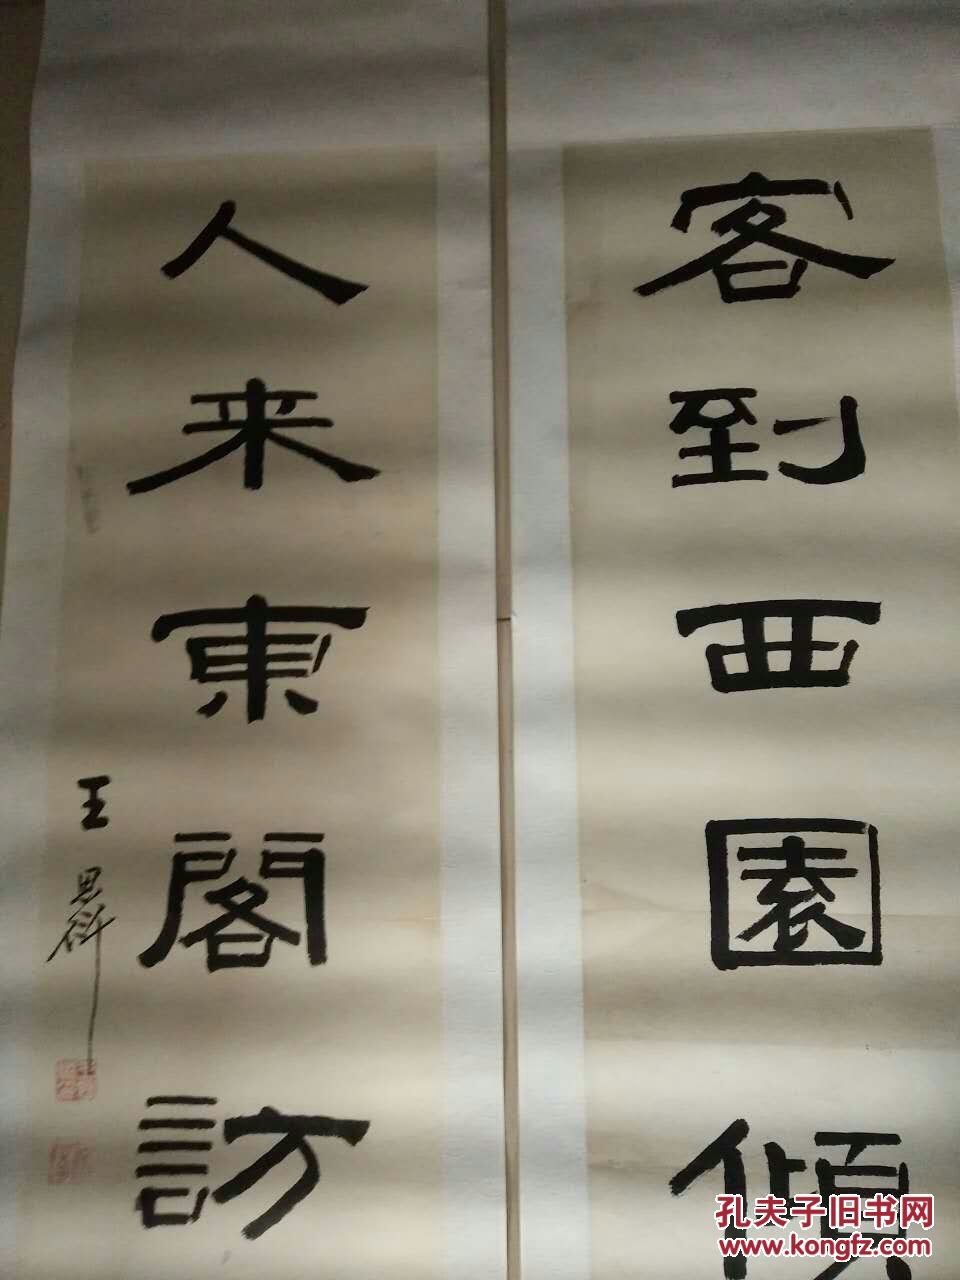 客到西園傾
人来東閣訪
王思科
孔夫子旧书网
www.kongfz.com